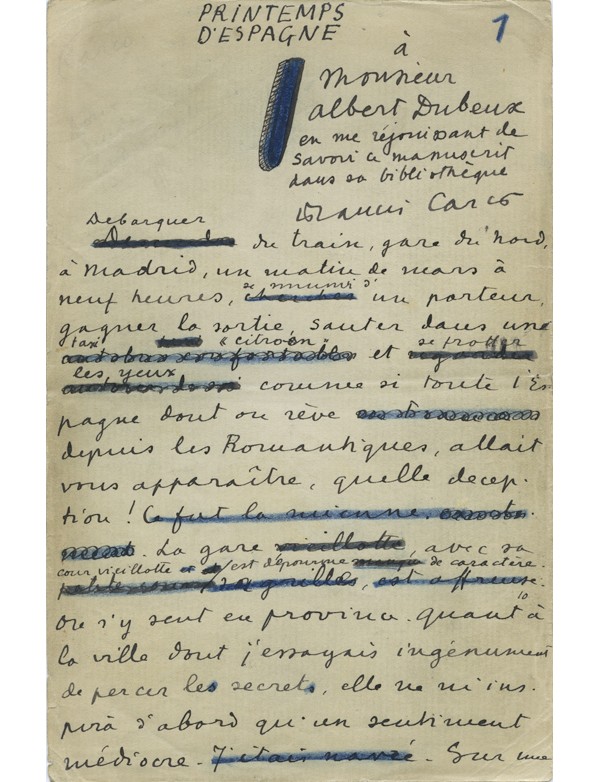 PRINTEMPS
D'ESPAGNE
1
à
Monsieur
Albert Dubeux
en me réjouissant de
savoir ce manuscrit
dans sa bibliothèque
Francis Carco
Debarquer
du train, gare du Nord,
à Madrid, un matin de mars à
se munir d'
neuf heures, chercher un porteur,
gagner la sortie, sauter dans une
taxi "citroën" se frotter
autobus confortables et regarder
les yeux
comme si toute l'Es-
pagne dont on rêve
depuis les Romantiques, allait
vous apparaître, quelle décep-
tion! Ce fut la mienne.
La gare vieillotte, avec sa
cour vieillotte et est dépourvue de caractère.
petite cour grilles, est affreuse.
On s'y sent en province. Quant à
la ville dont j'essayais ingénument
de percer les secrets, elle ne m'ins-
pira d'abord qu'un sentiment
médiocre. J'étais navré. Sur une